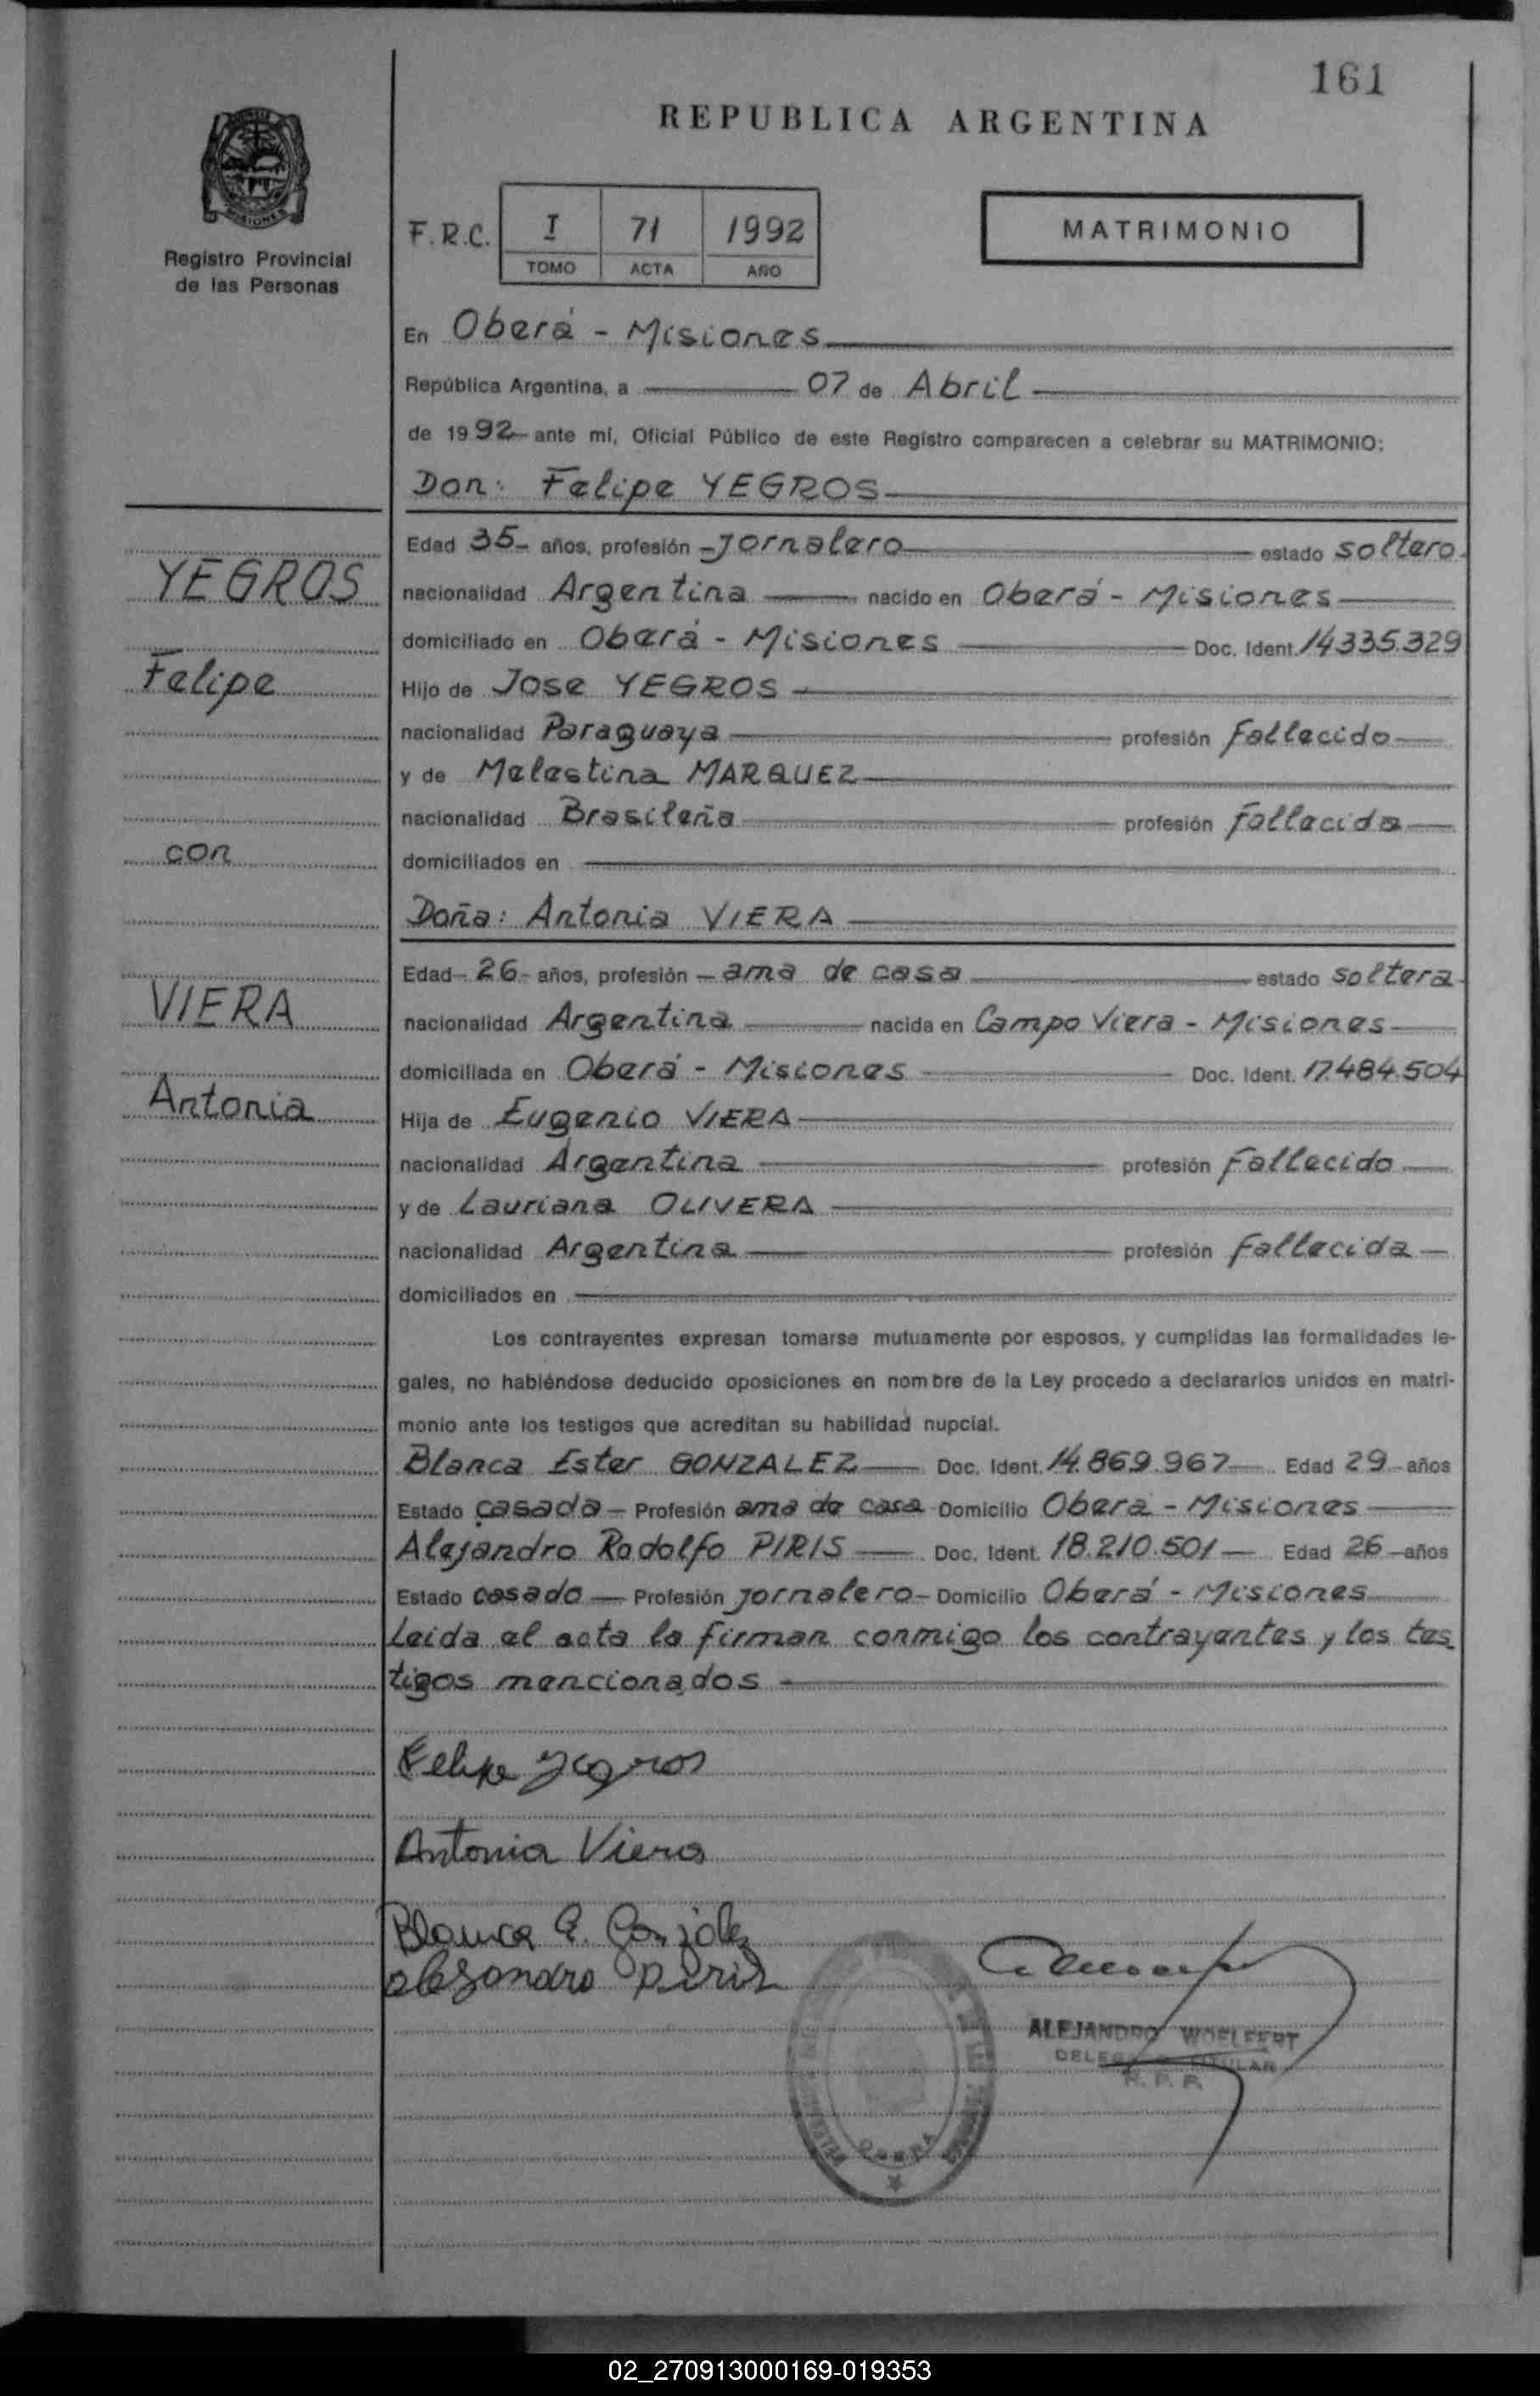 161
REPUBLICA ARGENTINA
Registro Provincial
de las Personas
F.R.C.
I 71 1992
TOMO ACTA AÑO
MATRIMONIO
En Oberá - Misiones
República Argentina, a 07 de Abril
de 1992 ante mi, Oficial Público de este Registro comparecen a celebrar su MATRIMONIO:
Don: Felipe YEGROS
Edad 35 años, profesión Jornalero estado soltero
YEGROS
nacionalidad Argentina nacido en Oberá - Misiones
domiciliado en Oberá - Misiones Doc. Ident. 14.335.329
Felipe
Hijo de Jose YEGROS
nacionalidad Paraguaya profesión Fallecido
y de Melestina MARQUEZ
nacionalidad Brasileña profesión fallecida
con
domiciliados en
Doña: Antonia VIERA
Edad 26 años, profesión ama de casa estado soltera
VIERA
nacionalidad Argentina nacida en Campo Viera - Misiones
domiciliada en Oberá - Misiones Doc. Ident. 17.484.504
Antonia
Hija de Eugenio VIERA
nacionalidad Argentina profesión Fallecido
y de Lauriana OLIVERA
nacionalidad Argentina profesión fallecida
domiciliados en
Los contrayentes expresan tomarse mutuamente por esposos, y cumplidas las formalidades le-
gales, no habiéndose deducido oposiciones en nombre de la Ley procedo a declararlos unidos en matri-
monio ante los testigos que acreditan su habilidad nupcial.
Blanca Ester GONZALEZ Doc. Ident. 14.869.967 Edad 29 años
Estado casada Profesión ama de casa Domicilio Oberá - Misiones
Alejandro Rodolfo PIRIS Doc. Ident. 18.210.501 Edad 26 años
Estado casado Profesión Jornalero Domicilio Oberá - Misiones
Leida el acta la firman conmigo los contrayentes y los tes_
tigos mencionados
Felipe Yegros
Antonia Viera
Blanca E. Gonzalez
alejandro piris
ALEJANDRO WOELFERT
DELEGADO TITULAR
R. P. P.
OBERA
02_270913000169-019353